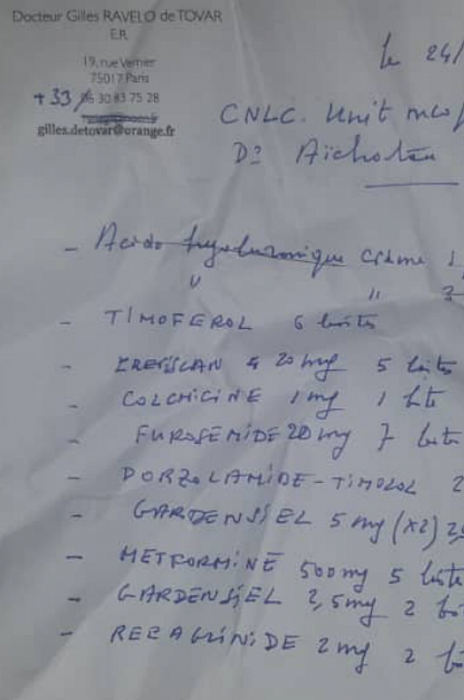 Docteur Gilles RAVELO de TOVAR
E.R.
19, rue Vernier
75017 Paris
+33 06 30 83 75 28
gilles.detovar@orange.fr
le 24/
CNLC. Unit
Dr Aïchotou
- Acide hyaluronique crème 1
" " 3
- TIMOFEROL 6 boites
- 20mg 5 boites
- COLCHICINE 1mg 1 bte
- FUROSEMIDE 20mg 7 boite
- DORZOLAMIDE-TIMOLOL 2
- GARDENSIEL 5mg (x2)
- METFORMINE 500mg 5 boite
- GARDENSIEL 2,5mg 2 bo
- REPAGLINIDE 2mg 2 bo